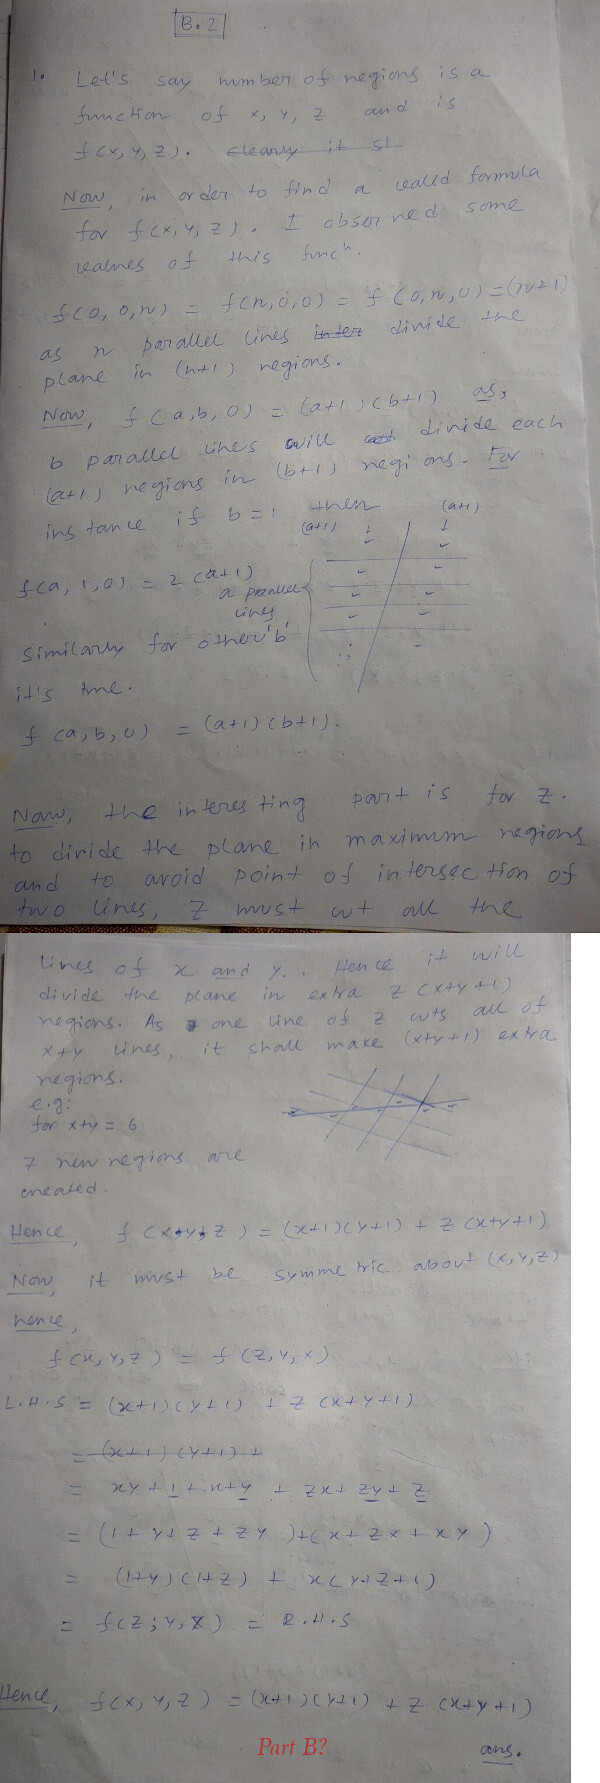 B.2
1. Let's say number of regions is a
function of x, y, z and is
f(x,y,z). clearly it
Now, in order to find a valid formula
for f(x,y,z). I observed some
values of this funcn.
f(0,0,n) = f(n,0,0) = f(0,n,0) = (n+1)
as n parallel lines inter divide the
plane in (n+1) regions.
Now, f(a,b,0) = (a+1)(b+1) as,
b parallel lines will divide each
(a+1) regions in (b+1) regions. For
instance if b=1 then
(a+1) (a+1)
f(a,1,0) = 2(a+1)
a parallel
lines
Similarly for other 'b'
it's true.
f(a,b,0) = (a+1)(b+1).
Now, the interesting part is for z.
to divide the plane in maximum regions
and to avoid point of intersection of
two lines, z must cut all the
lines of x and y. Hence it will
divide the plane in extra z(x+y+1)
regions. As one line of z cuts all of
x+y lines, it shall make (x+y+1) extra
regions.
e.g:
for x+y = 6
7 new regions are
created.
Hence, f(x,y,z) = (x+1)(y+1) + z(x+y+1)
Now, it must be symmetric about (x,y,z)
hence,
f(x,y,z) = f(z,y,x)
L.H.S = (x+1)(y+1) + z(x+y+1)
= (x+1)(y+1) +
= xy+1+x+y + zx+zy+z
= (1+y+z+zy)+(x+zx+xy)
= (1+y)(1+z) + x(y+z+1)
= f(z,y,x) = R.H.S
Hence, f(x,y,z) = (x+1)(y+1) + z(x+y+1)
Part B? ans.